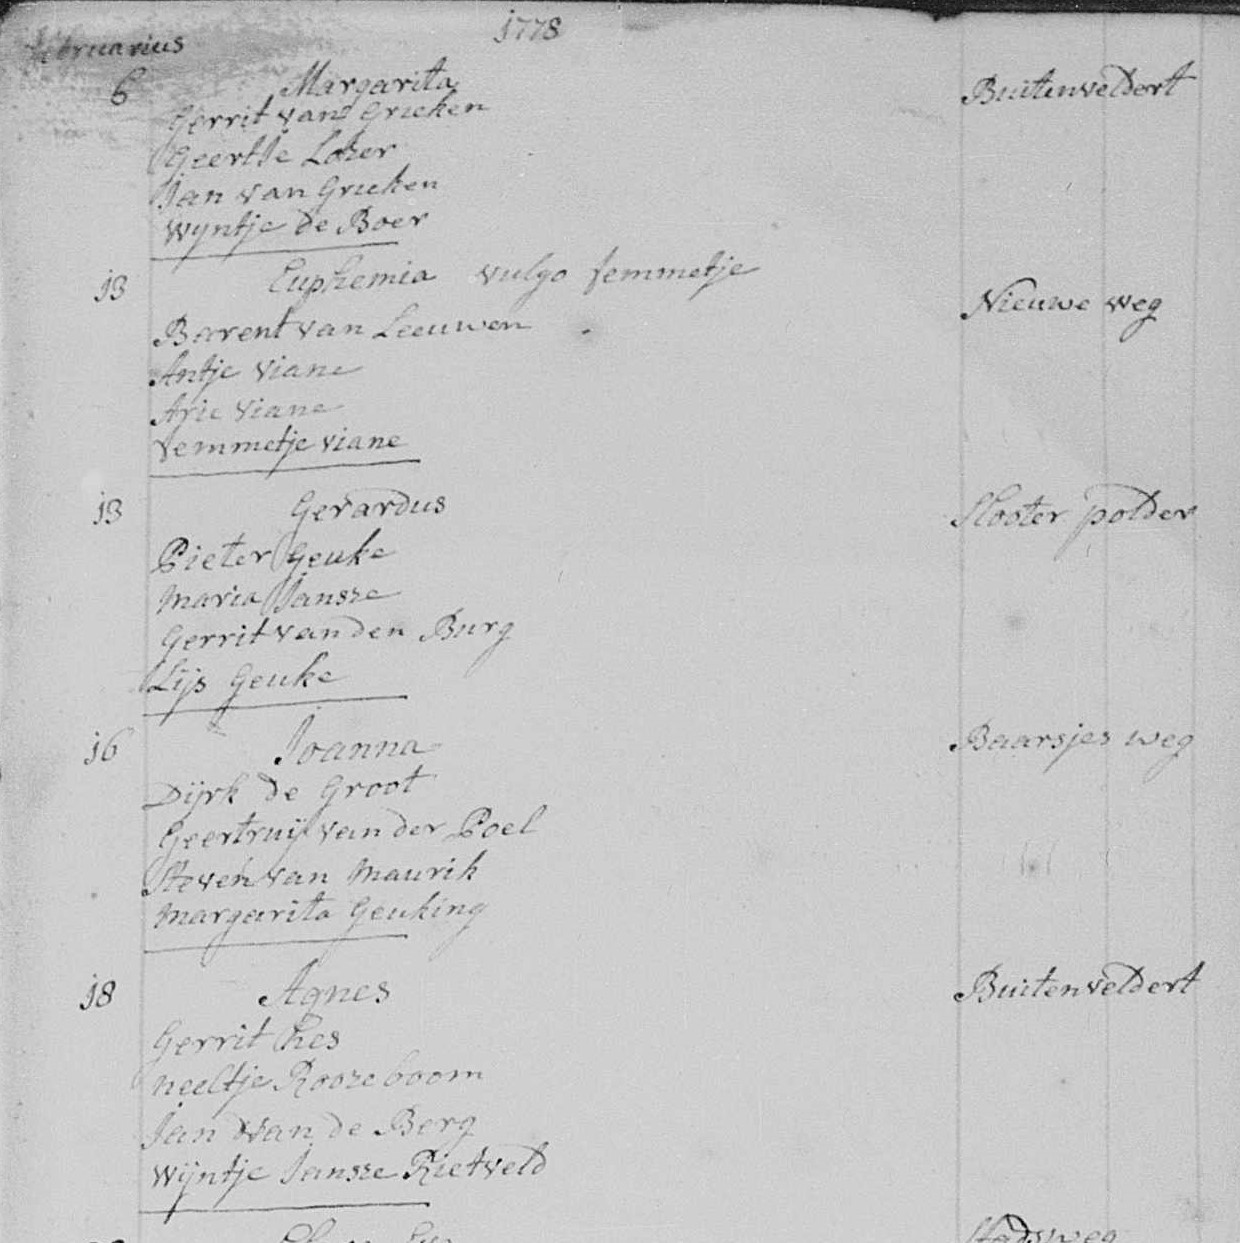 1778
Februarius
6 Margarita Buitenveldert
Gerrit van Grieken
Geertje Loher
Jan van Grieken
Wyntje de Boer
13 Euphemia vulgo femmetje
Nieuwe weg
Barent van Leeuwen
Antje Viane
Arie Viane
femmetje viane
13 Gerardus Slooter polder
Pieter Geuke
Maria Jansze
Gerrit van den Burg
Lijs Geuke
16 Joanna Baarsjes weg
Dijrk de Groot
Geertruij van der Poel
Steven van Maurik
Margarita Geuking
18 Agnes Buitenveldert
Gerrit Hes
neeltje Rooze boom
Jan van de Berg
Wijntje Jansze Rietveld
Stadsweg